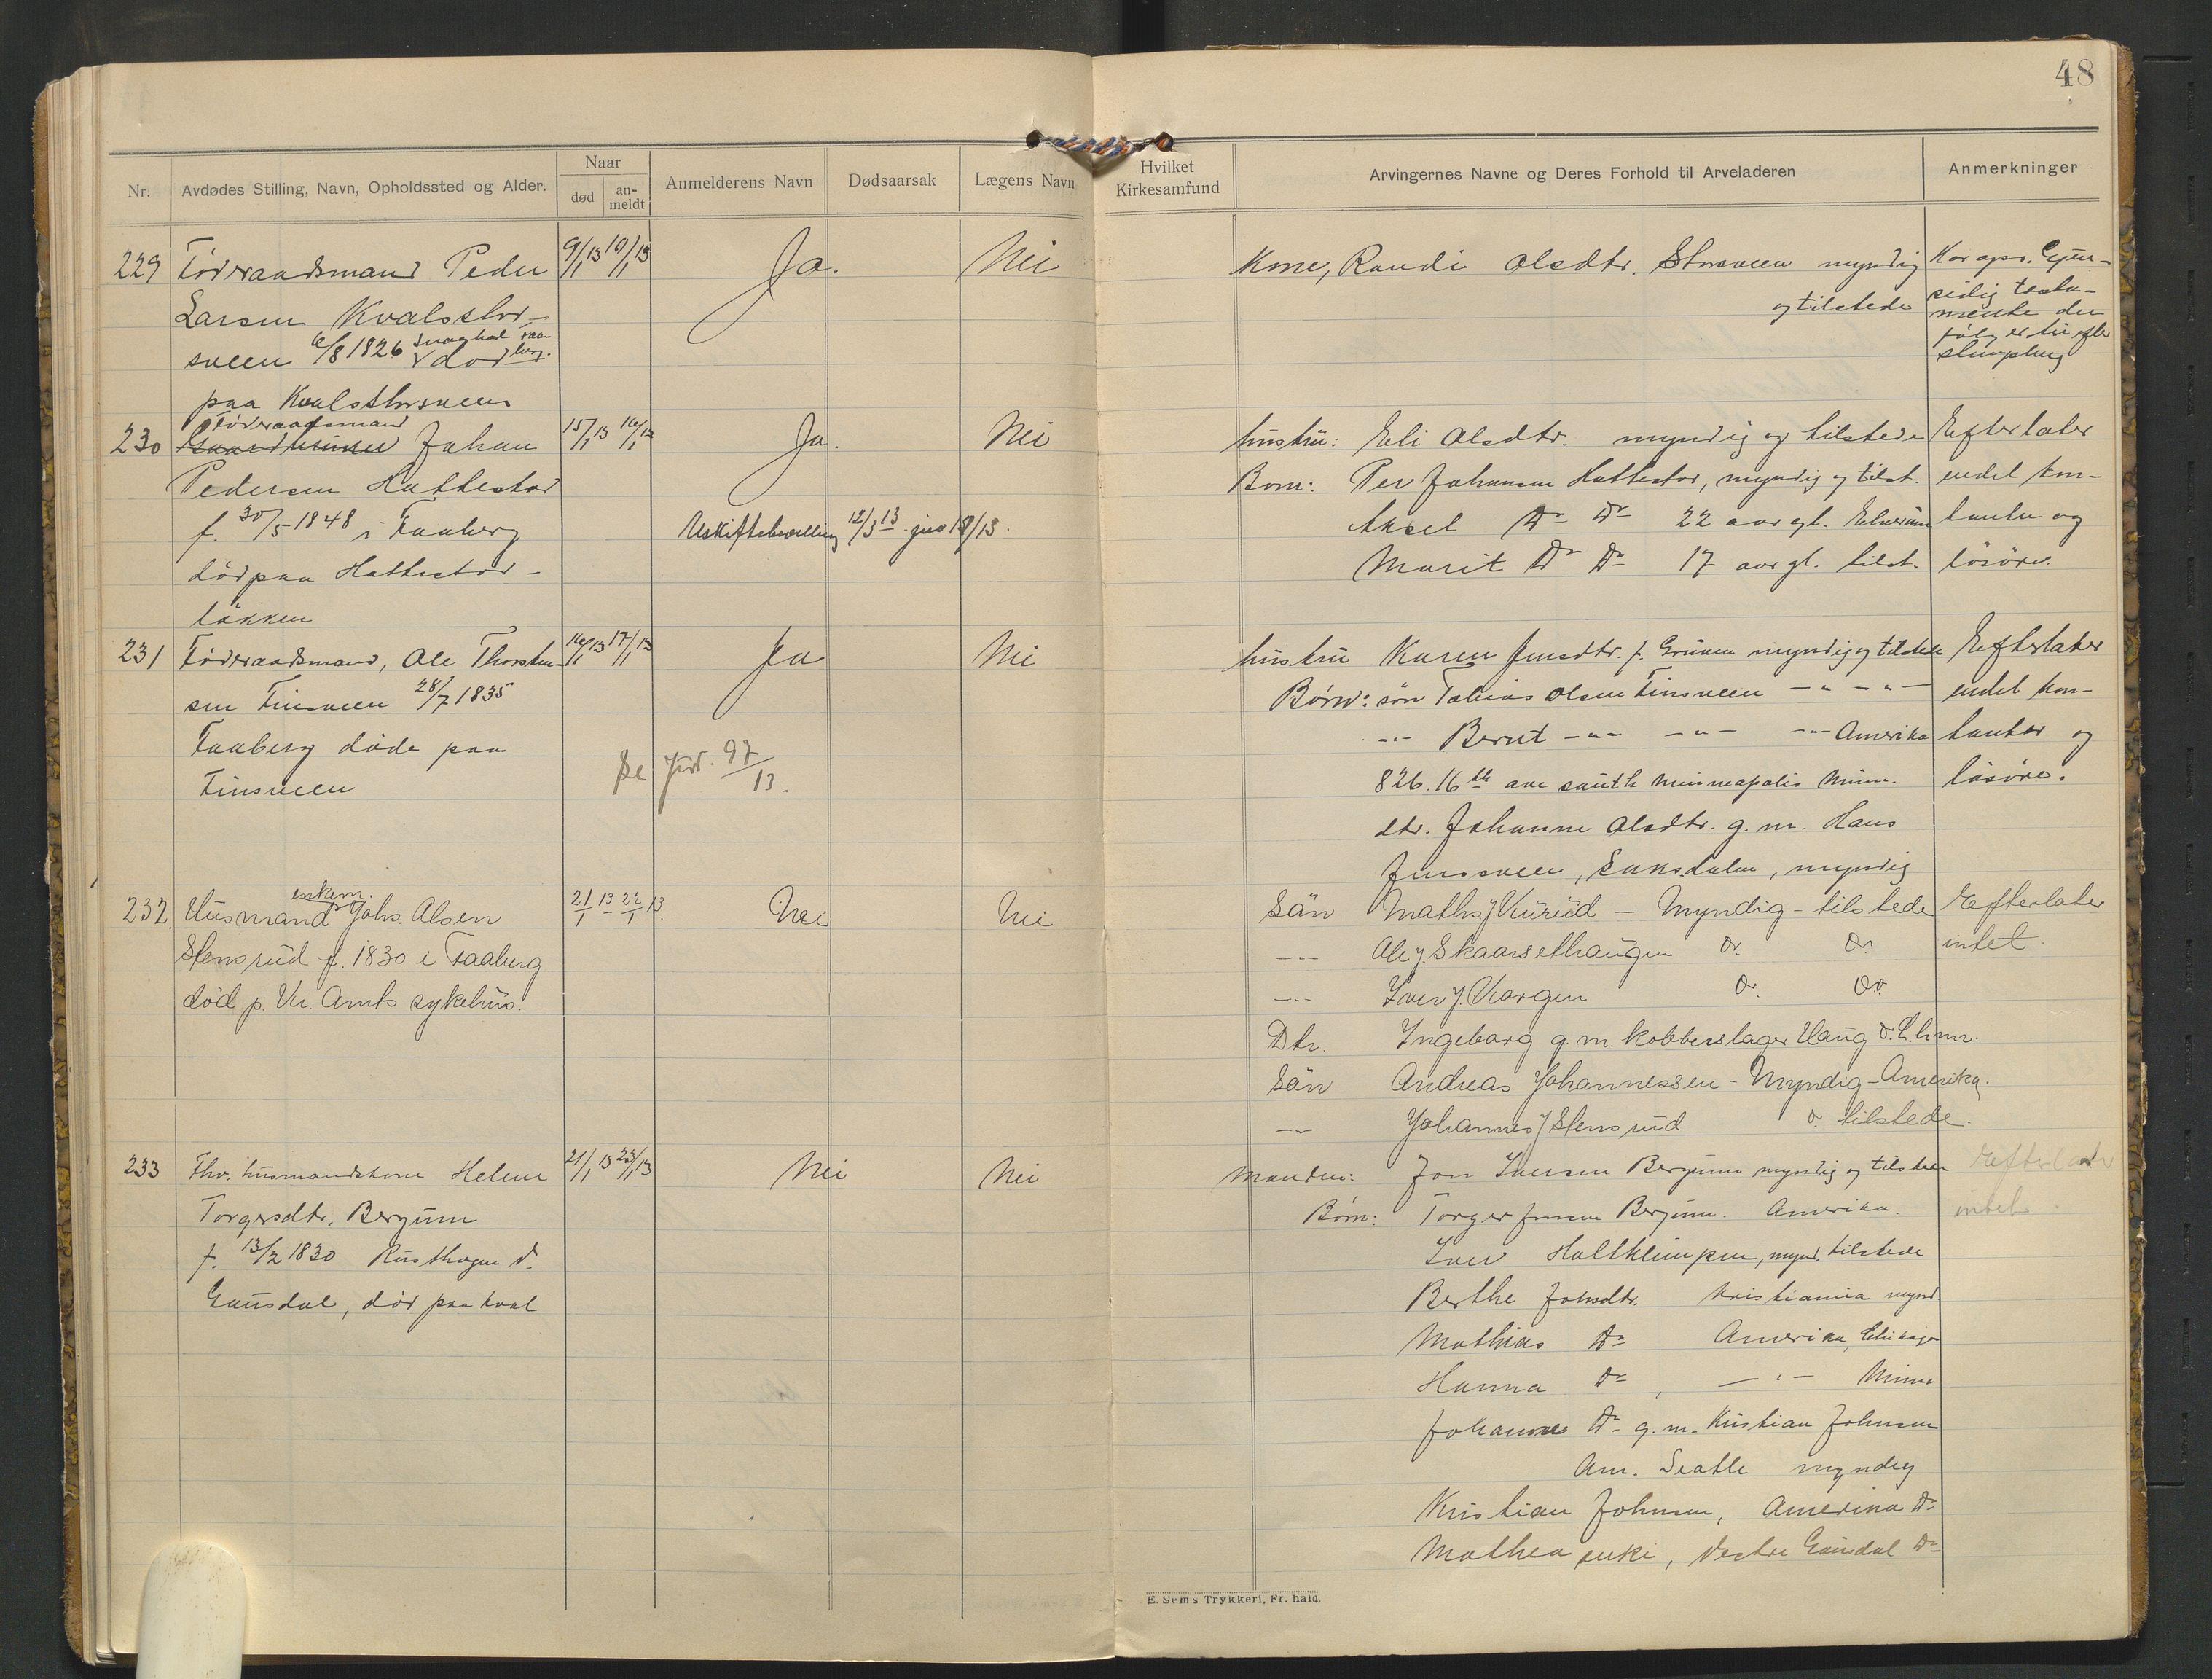 48
Nr.
Avdødes Stilling, Navn, Opholdssted og Alder.
Naar
død
an-
meldt
Anmelderens Navn
Dødsaarsak
Lægens Navn
Hvilket
Kirkesamfund
Arvingernes Navne og Deres Forhold til Arveladeren
Anmerkninger
229 Föderaadsmand Peder
Larsen Kvalsstor-
sveen 6/8 1826
død
paa Kvalsstorsveen
9/1 13 10/1 13
Ja.
Nei
Kone, Randi Olsdtr. Storsveen myndig
og tilstede
Gjen-
sidig testa-
mente
230 Föderaadsmand
Gaardbruker Johan
Pedersen Hattestad
f. 30/5 1848 i Faaberg
död paa Hattestad-
løkken
15/1 13 16/1 13
Ja.
Nei
Uskiftebevilling 12/3 13
hustru: Eli Olsdtr. myndig og tilstede
Born: Per Johansen Hattestad, myndig og tilst.
Aksel Do Do 22 aar gl. Elverum
Marit Do Do 17 aar gl. tilst.
Efterlater
endel kon-
tanter og
lösöre.
231 Föderaadsmand, Ole Thorsten-
sen Finsveen 28/7 1835
Faaberg døde paa
Finsveen
16/1 13 17/1 13
Ja
Nei
Se jur. 97/13.
hustru Karen Jensdtr. f. Gruven myndig og tilstede
Børn: søn Tobias Olsen Finsveen -"- -"-
-"- Bernt -"- -"- -"- Amerika
826. 16th ave south Minneapolis Minn.
dtr. Johanne Olsdtr. g. m. Hans
Jensveen, Saksdalen, myndig
Efterlater
endel kon-
tanter og
løsøre.
232. Husmand enkem. Johs. Olsen
Stensrud f. 1830 i Faaberg
död p. Kr. Amts sykehus.
21/1 13 22/1 13.
Nei
Nei
Sön Maths J. Kurud - Myndig - tilstede
-"- Ole J. Skaarsethaugen Do. Do.
-"- Iver J. Korgen Do. Do.
Dtr. Ingeborg g. m. Kobberslager Haug D. L.hmr.
Sön Andreas Johannessen - Myndig - Amerika.
-"- Johannes J Stensrud Do tilstede.
Efterlater
intet
233 Fhv. husmandskone Helene
Torgersdtr. Bergum
f. 13/2 1830 Rusthagen V.
Gausdal, död paa Kval
21/1 13 23/1 13
Nei
Nei
Manden: Jon Iversen Bergum myndig og tilstede
Børn: Torger Jonsen Bergum. Amerika.
Iver Holtklimpen, mynd. tilstede
Berthe Jonsdtr. Kristiania mynd.
Mathias Do Amerika,
Hanna Do, -"- Minne
Johanne Do g. m. Kristian Johnsen
Am. Seatle myndig
Kristian Johnsen, Amerika Do
Mathea enke, Vestre Gausdal Do
Efterlater
intet
E. Sem's Trykkeri, Fr. hald.